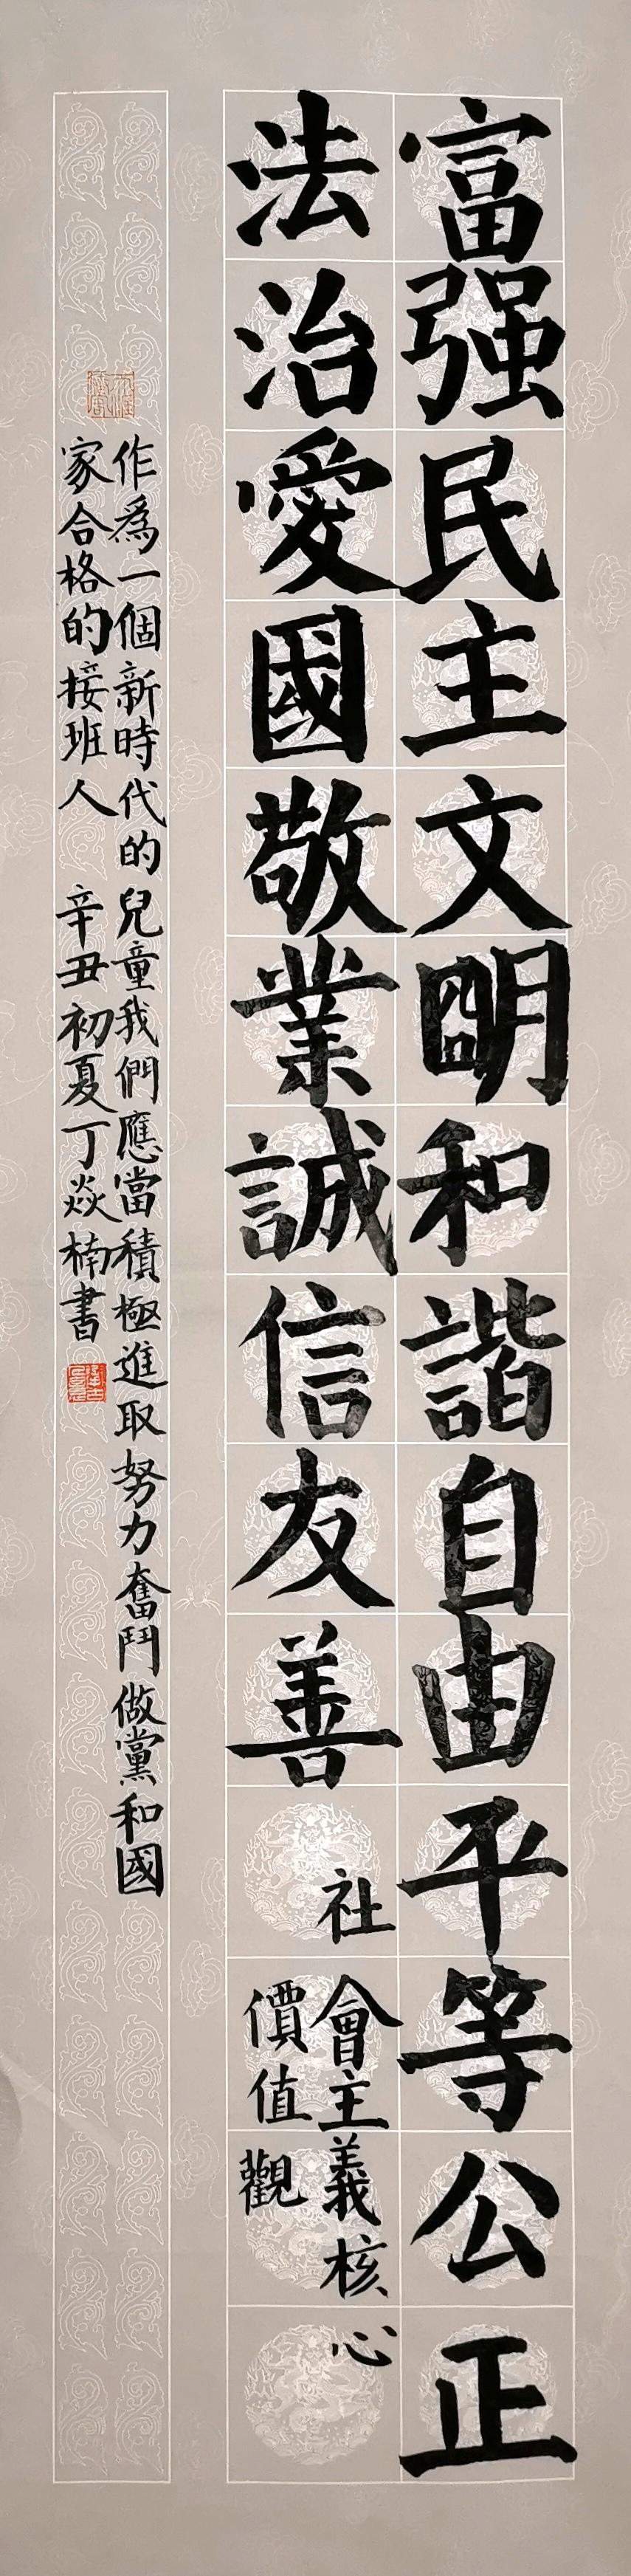 富强民主文明和諧自由平等公正
法治愛國敬業誠信友善
社會主義核心
價值觀
作爲一個新時代的兒童我們應當積極進取努力奮鬥做黨和國
家合格的接班人 辛丑初夏丁焱楠書